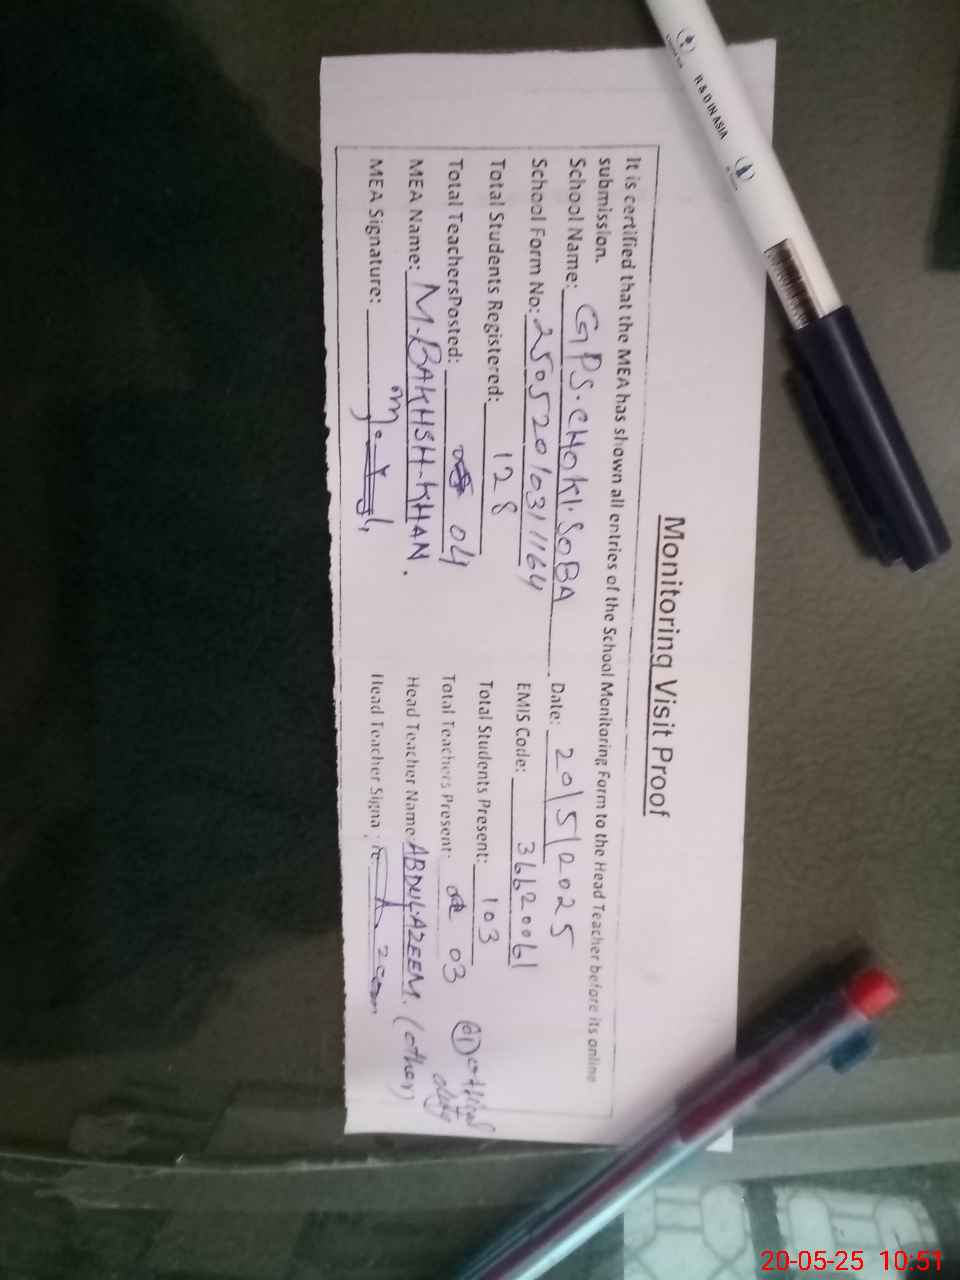 Monitoring Visit Proof
It is certified that the MEA has shown all entries of the School Monitoring Form to the Head Teacher before its online
submission.
School Name: GPS. CHOKI. SOBA Date: 20/5/2025
School Form No: 25052010311164 EMIS Code: 36620061
Total Students Registered: 128 Total Students Present: 103
Total TeachersPosted: 04 Total Teachers Present: 03 (01) official duty
MEA Name: M. BAKHSH. KHAN. Head Teacher Name: ABDUL AZEEM. (other)
MEA Signature: Head Teacher Signa
R & D IN ASIA
20-05-25 10:51